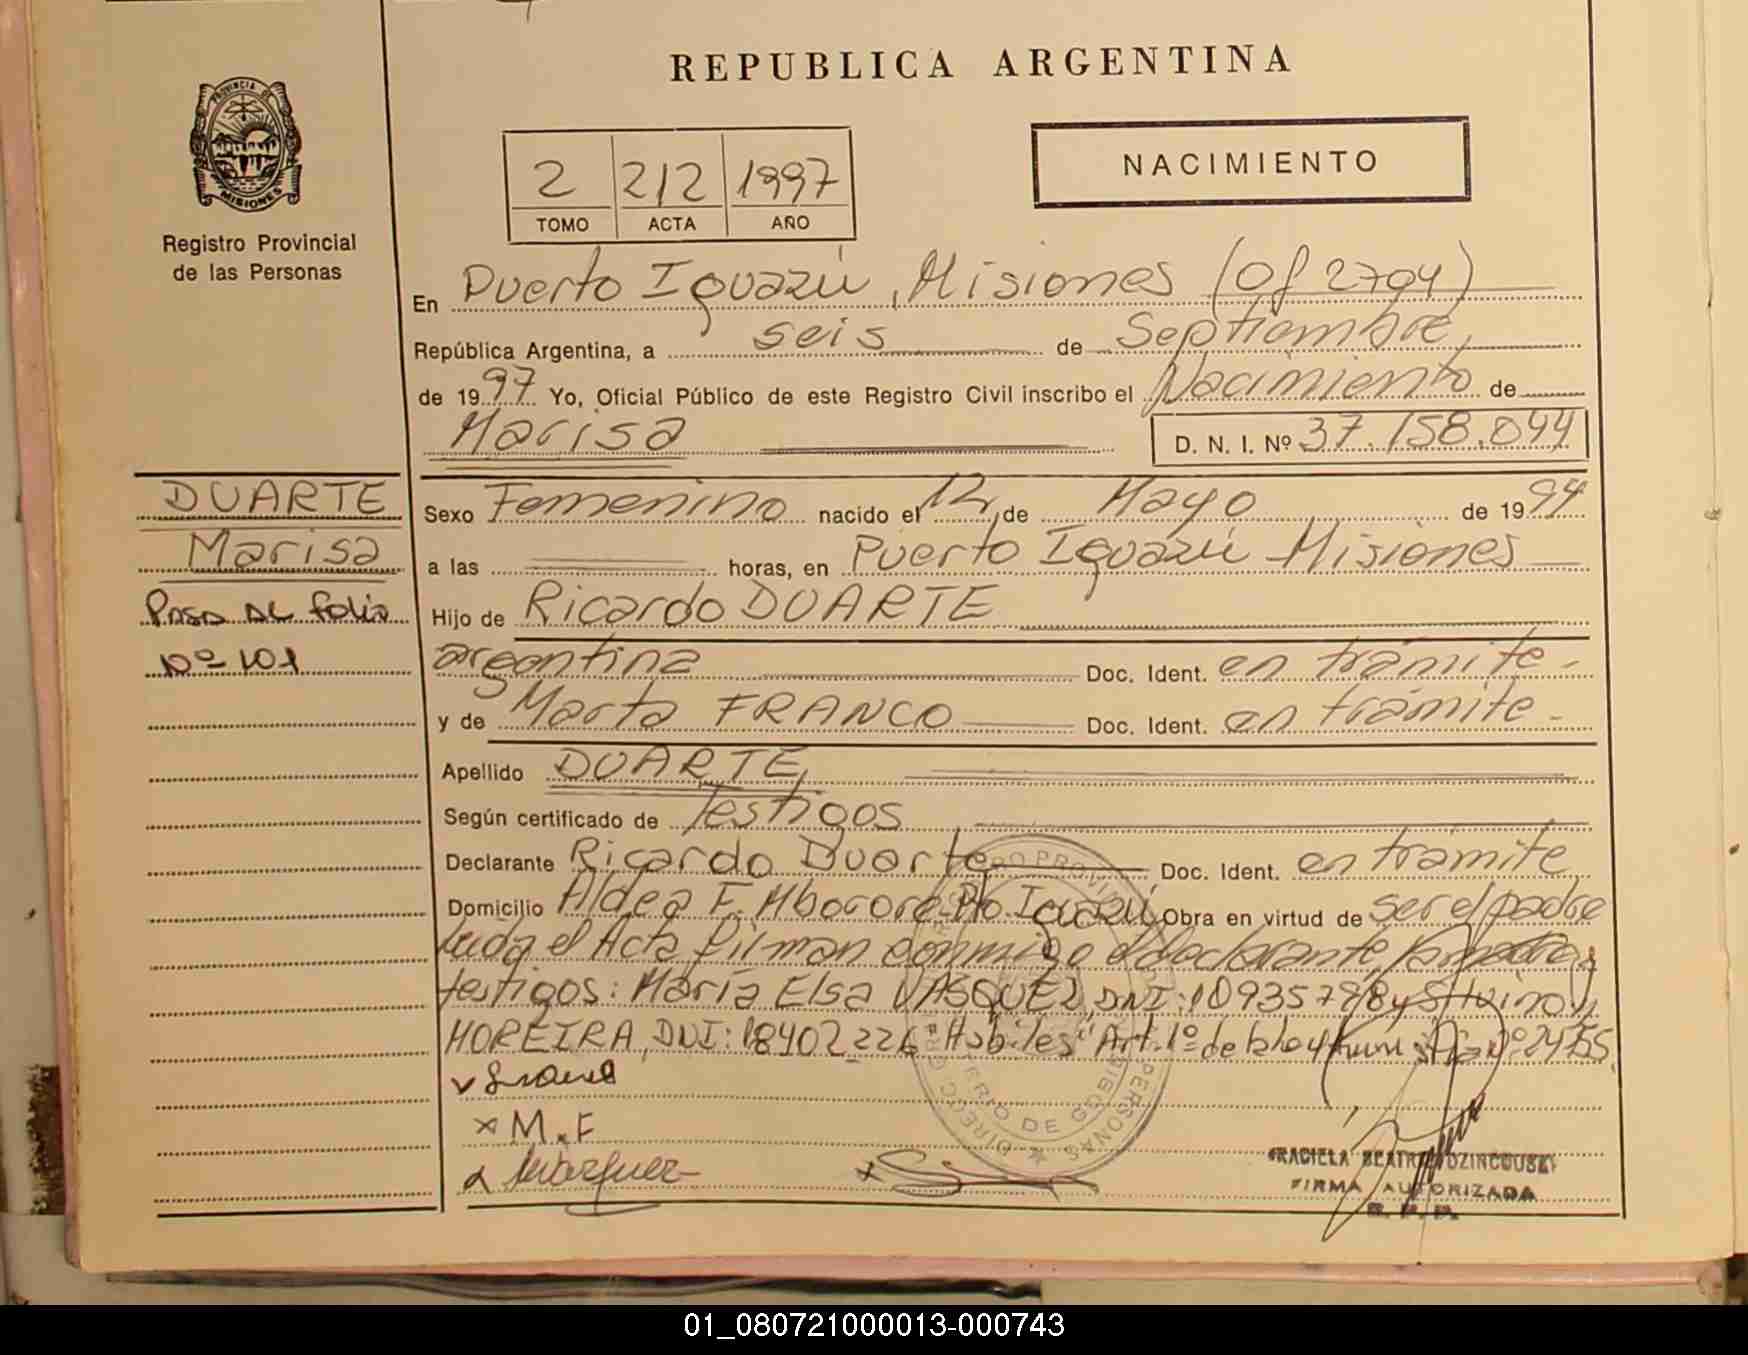 REPUBLICA ARGENTINA
PROVINCIA DE
MISIONES
Registro Provincial
de las Personas
2 212 1997
TOMO ACTA AÑO
NACIMIENTO
En Puerto Iguazú, Misiones (Of 2704)
República Argentina, a seis de Septiembre,
de 1997 Yo, Oficial Público de este Registro Civil inscribo el Nacimiento de
Marisa D. N. I. Nº 37.158.044
DUARTE
Marisa
Pasa al folio
nº 101
Sexo Femenino nacido el 12 de Mayo de 1994
a las horas, en Puerto Iguazú Misiones
Hijo de Ricardo DUARTE
argentina Doc. Ident. en trámite-
y de Marta FRANCO Doc. Ident. en trámite-
Apellido DUARTE,
Según certificado de Testigos
Declarante Ricardo Duarte Doc. Ident. en trámite
Domicilio Aldea F. Mbororé-Pto. Iguazú Obra en virtud de ser el padre
Leida el Acta firman conmigo el declarante,
testigos: María Elsa VASQUEZ, DNI: y Silvino
MOREIRA, DNI: 18402226 "Habiles" Art. 1º de la Ley
x M.F
GRACIELA BEATRIZ
FIRMA AUTORIZADA
01_080721000013-000743